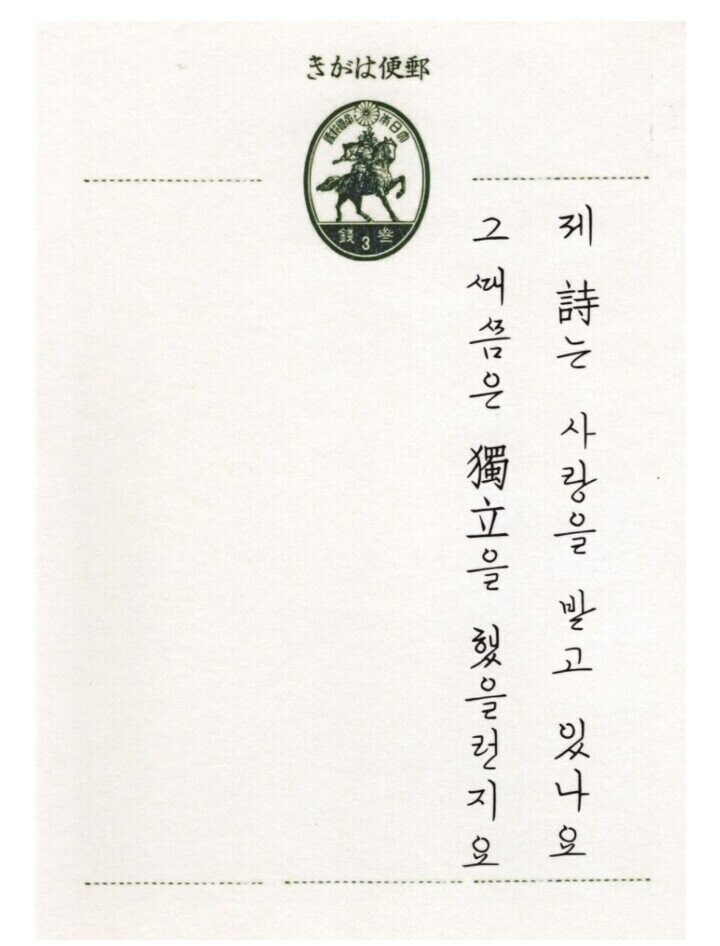 きがは便郵
大日本帝國郵便
錢3叁
제 詩는 사랑을 받고 있나요
그 때쯤은 獨立을 했을런지요